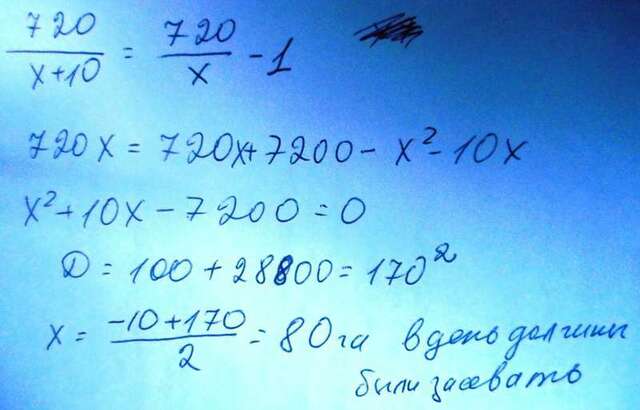 720/(x+10) = 720/x - 1
720x = 720x + 7200 - x² - 10x
x² + 10x - 7200 = 0
D = 100 + 28800 = 170²
x = (-10 + 170)/2 = 80 га в день должны
были засевать